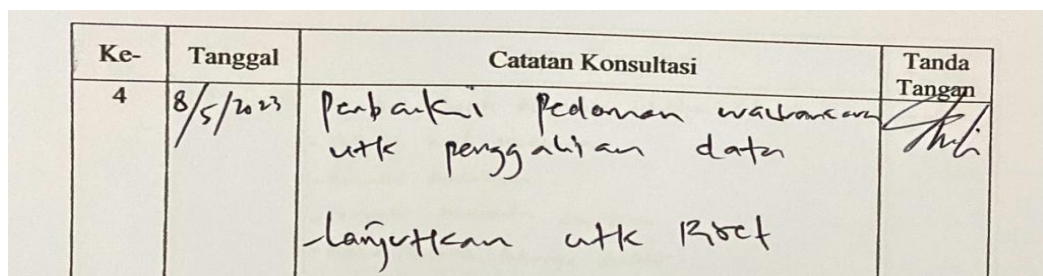 Ke- Tanggal Catatan Konsultasi Tanda Tangan
4 8/5/2023 Perbaiki Pedoman wawancara
utk penggalian data
-lanjutkan utk Riset